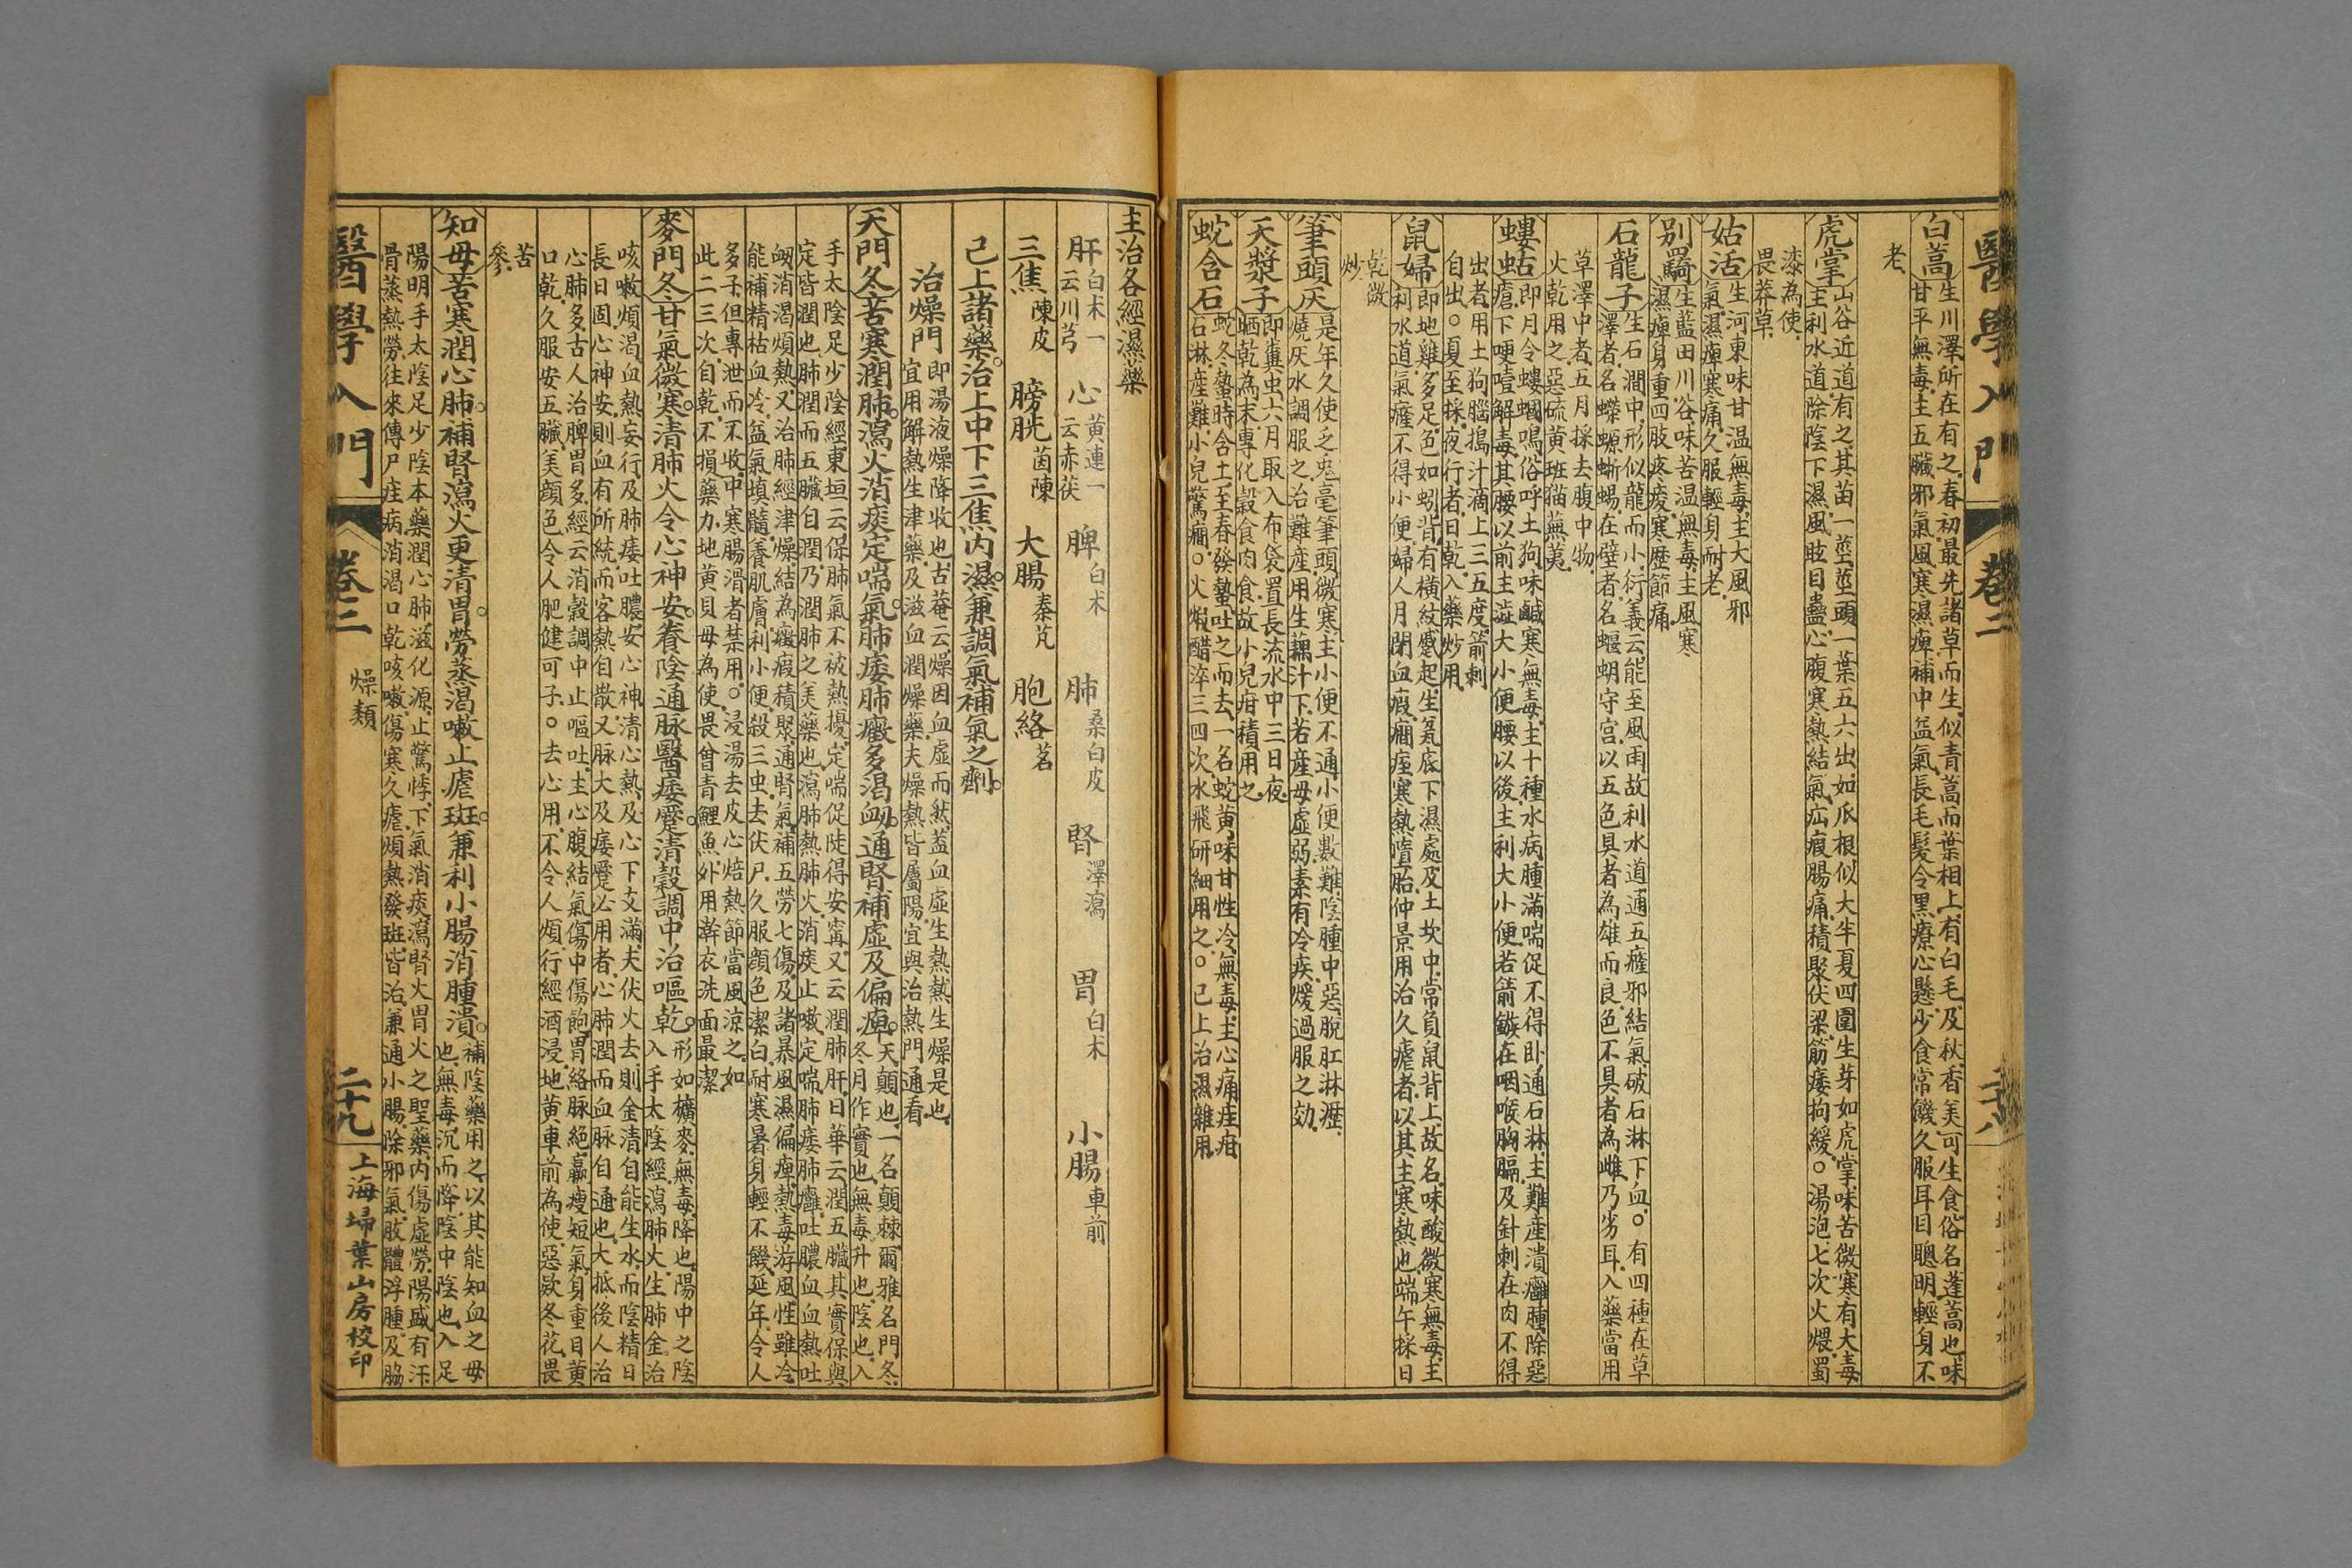 醫學入門
卷二
二十八
白蒿
生川澤所在有之春初最先諸草而生似青蒿而葉相上有白毛及秋香美可生食俗名蓬蒿也味
甘平無毒主五臟邪氣風寒濕痺補中益氣長毛髮令黑療心懸少食常饑久服耳目聰明輕身不
老
虎掌
山谷近道有之其苗一莖莖頭一葉五六出如爪根似大半夏四圍生芽如虎掌味苦微寒有大毒
主利水道除陰下濕風眩目蠱心腹寒熱結氣疝瘕腸痛積聚伏梁筋痿拘緩○湯泡七次火煨蜀
漆為使
畏莽草
姑活
生河東味甘温無毒主大風邪
氣濕痺寒痛久服輕身耐老
别羇
生藍田川谷味苦温無毒主風寒
濕痺身重四肢疼痠寒歷節痛
石龍子
生石澗中形似龍而小衍義云能至風雨故利水道通五癃邪結氣破石淋下血○有四種在草
澤者名蠑螈蜥蜴在壁者名蝘蜓守宮以五色具者為雄而良色不具者為雌乃劣耳入藥當用
草澤中者五月採去腹中物
火乾用之惡硫黄班猫蕪荑
螻蛄
即月令螻蟈鳴俗呼土狗味鹹寒無毒主十種水病腫滿喘促不得卧通石淋主難產潰癰腫除惡
瘡下哽噎解毒其腰以前主澁大小便腰以後主利大小便若箭鏃在咽喉胸膈及針刺在肉不得
出者用土狗腦搗汁滴上三五度箭刺
自出○夏至採夜行者日乾入藥炒用
鼠婦
即地雞多足色如蚓背有橫紋蹙起生瓮底下濕處及土坎中常負鼠背上故名味酸微寒無毒主
利水道氣癃不得小便婦人月閉血瘕癎痓寒熱墮胎仲景用治久瘧者以其主寒熱也端午採日
乾微
炒
筆頭灰
是年久使乏兔毫筆頭微寒主小便不通小便數難陰腫中惡脫肛淋瀝
燒灰水調服之治難產用生藕汁下若產母虛弱素有冷疾煖過服之効
天漿子
即糞虫六月取入布袋置長流水中三日夜
晒乾為末專化穀食肉食故小兒疳積用之
蛇含石
蛇冬蟄時含土至春發蟄吐之而去一名蛇黄味甘性冷無毒主心痛疰疳
石淋產難小兒驚癎○火煅醋淬三四次水飛研細用之○已上治濕雜用
主治各經濕藥
肝 白朮一云川芎 心 黄連一云赤茯 脾 白朮 肺 桑白皮 腎 澤瀉 胃 白朮 小腸 車前
三焦 陳皮 膀胱 茵陳 大腸 秦艽 胞絡 茗
已上諸藥治上中下三焦内濕兼調氣補氣之劑
治燥門
即湯液燥降收也古菴云燥因血虛而然蓋血虛生熱熱生燥是也
宜用解熱生津藥及滋血潤燥藥夫燥熱皆屬陽宜與治熱門通看
天門冬苦寒潤肺瀉火消痰定喘氣肺痿肺癰多渴衂通腎補虛及偏痺
天顛也一名顛棘爾雅名門冬
冬月作實也無毒升也陰也入
手太陰足少陰經東垣云保肺氣不被熱擾定喘促陡得安寗又云潤肺肝日華云潤五臟其實保與
定皆潤也肺潤而五臟自潤乃潤肺之美藥也瀉肺熱肺火消痰止嗽定喘肺痿肺癰吐膿血血熱吐
衂消渴煩熱又治肺經津燥結為癥瘕積聚通腎氣補五勞七傷及諸暴風濕偏痺熱毒游風性雖冷
能補精枯血冷益氣填髓養肌膚利小便殺三虫去伏尸久服顔色潔白耐寒暑身輕不饑延年令人
多子但專泄而不收中寒腸滑者禁用○浸湯去皮心焙熱節當風涼之如
此二三次自乾不損藥力地黄貝母為使畏曾青鯉魚外用澣衣洗面最潔
麥門冬甘氣微寒清肺火令心神安養陰通脉醫痿躄清穀調中治嘔乾
形如穬麥無毒降也陽中之陰
入手太陰經瀉肺火生肺金治
咳嗽煩渴血熱妄行及肺痿吐膿安心神清心熱及心下支滿夫伏火去則金清自能生水而陰精日
長日固心神安則血有所統而客熱自散又脉大及痿躄必用者心肺潤而血脉自通也大抵後人治
心肺多古人治脾胃多經云消穀調中止嘔吐主心腹結氣傷中傷飽胃絡脉絕羸瘦短氣身重目黄
口乾久服安五臟美顔色令人肥健可子○去心用不令人煩行經酒浸地黄車前為使惡欵冬花畏
苦
參
知母苦寒潤心肺補腎瀉火更清胃勞蒸渴嗽止瘧斑兼利小腸消腫潰
補陰藥用之以其能知血之母
也無毒沉而降陰中陰也入足
陽明手太陰足少陰本藥潤心肺滋化源止驚悸下氣消痰瀉腎火胃火之聖藥内傷虛勞陽盛有汗
骨蒸熱勞往來傳尸疰病消渴口乾咳嗽傷寒久瘧煩熱發斑皆治兼通小腸除邪氣肢體浮腫及脇
醫學入門
卷三
燥類
二十九
上海埽葉山房校印